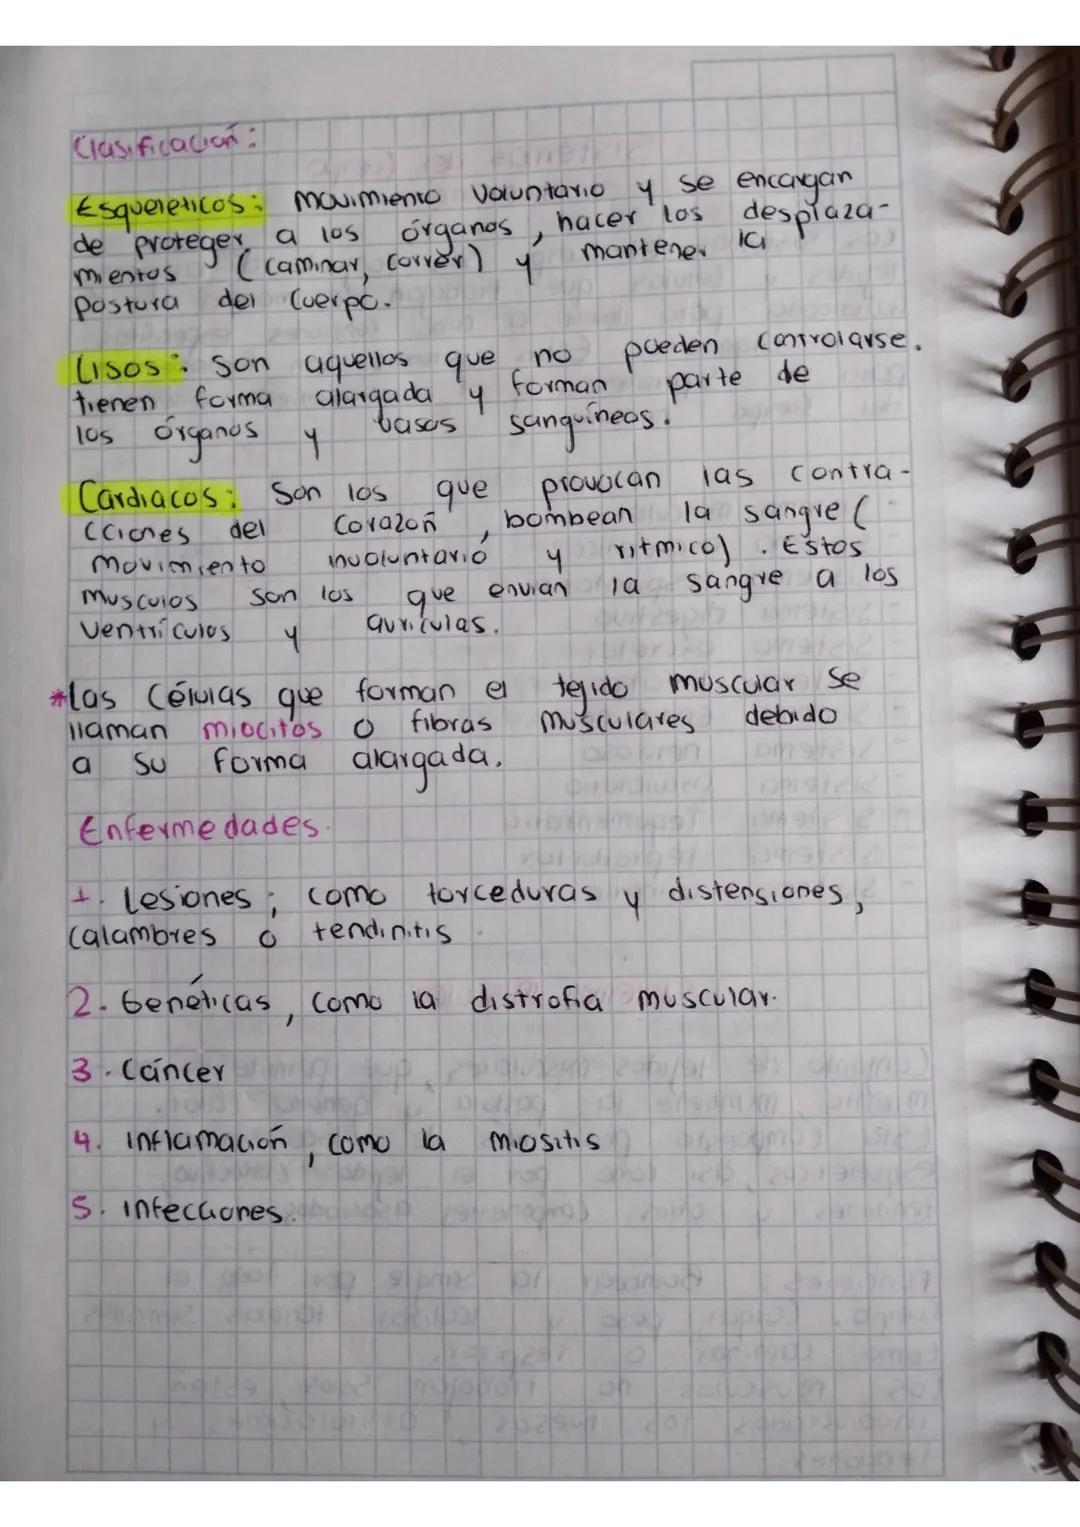 Clasificación:
Esqueleticos: movimiento voluntario y se encargan
de proteger a los órganos, hacer los desplaza-
mientos (caminar, correr) y mantener la
postura del cuerpo.
Lisos: son aquellos que no pueden controlarse.
tienen forma alargada y forman parte de
los órganos y vasos sanguíneos.
Cardiacos: Son los que provocan las contra-
cciones del corazón, bombean la sangre (
movimiento involuntario y ritmico). Estos
musculos son los que envian la sangre a los
ventrículos y auriculas.
*las células que forman el tejido muscular se
llaman miocitos o fibras musculares debido
a su forma alargada.
Enfermedades.
1. Lesiones; como torceduras y distensiones,
calambres o tendinitis.
2. Genéticas, como la distrofia muscular.
3. Cáncer
4. Inflamación, como la miositis
5. Infecciones.